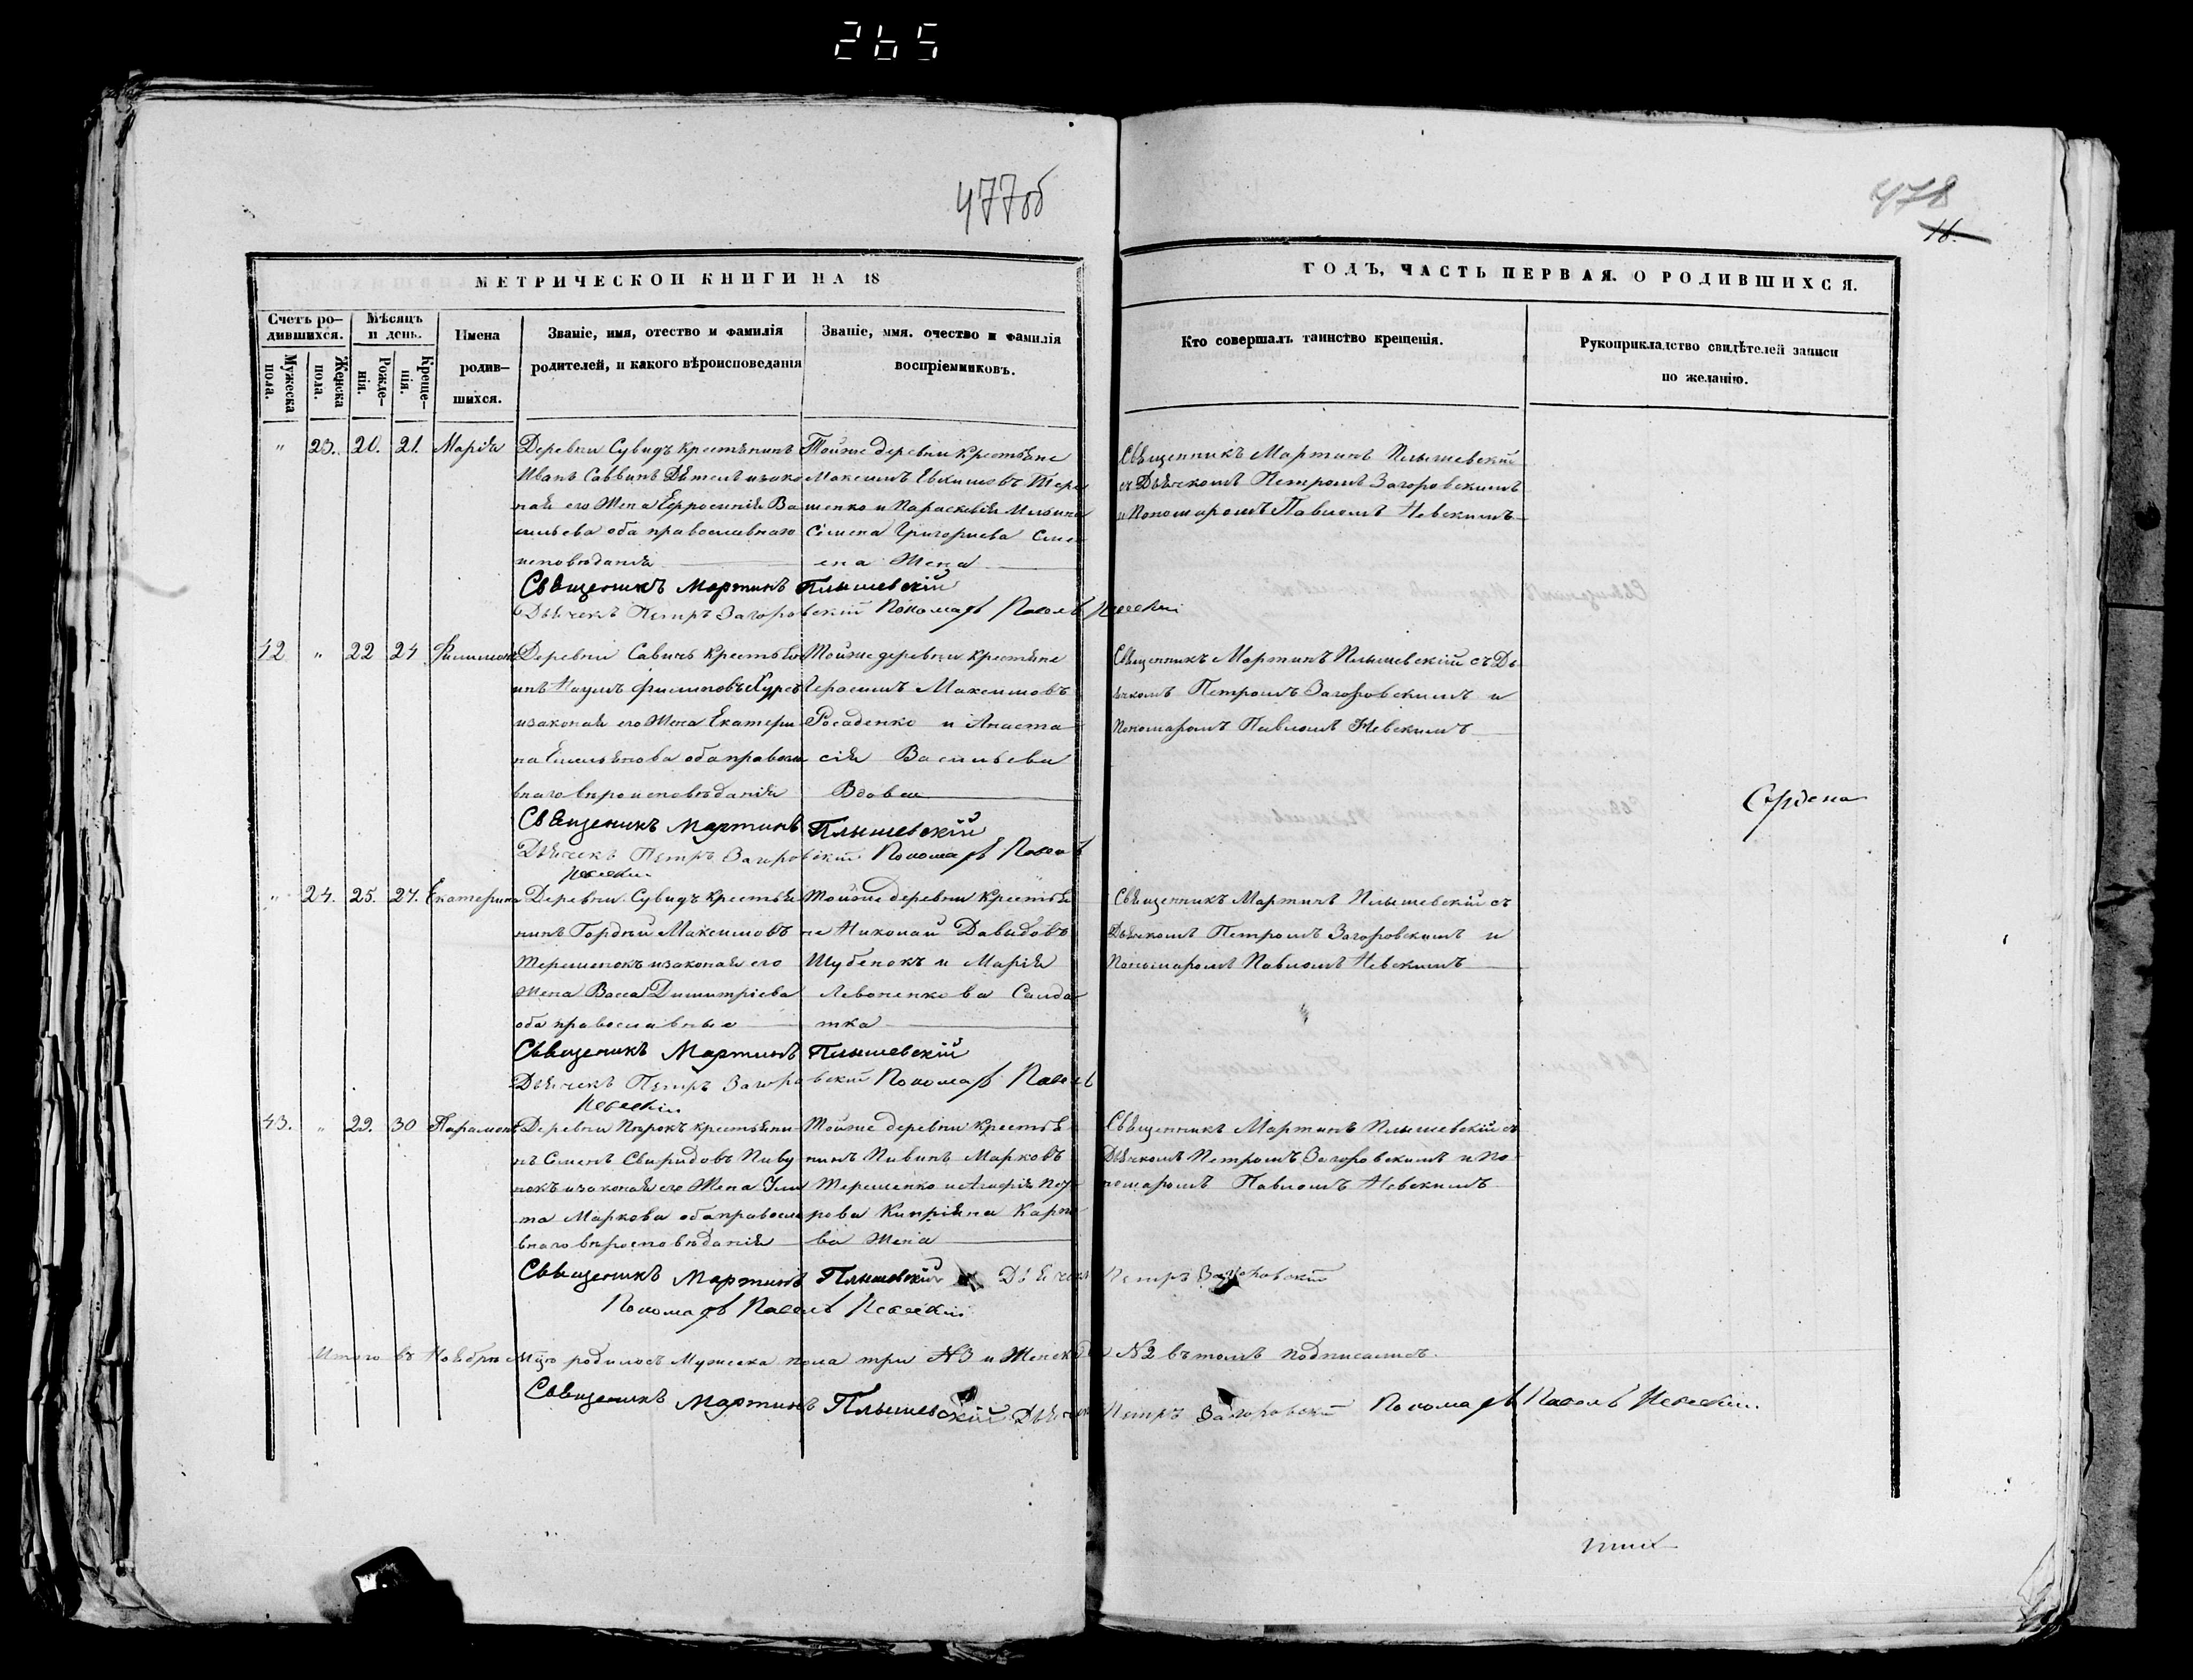 265
477об
478
18.
МЕТРИЧЕСКОЙ КНИГИ НА 18
ГОДЪ, ЧАСТЬ ПЕРВАЯ. О РОДИВШИХСЯ.
Счетъ ро-
дившихся.
Мужеска
пола.
Женска
пола.
Мѣсяцъ
и день.
Рожде-
нія.
Креще-
нія.
Имена
родив-
шихся.
Званіе, имя, отество и фамилія
родителей, и какого вѣроисповеданія
Званіе, имя. очество и фамилія
воспріемниковъ.
Кто совершалъ таинство крещенія.
Рукоприкладство свидѣтелей записи
по желанію.
" 23. 20. 21. Марія
Деревни Сувидъ крестьянинъ
Иванъ Саввинъ Дятелъ изако
ная его Жена Ефросинія Ва
сильева оба православнаго
исповѣданія
Тойже деревни крестьяне
Максимъ Евкимовъ Тере
шенко и Параскевія
Семена Григориева Сим
ена Жена
Священникъ Мартинъ Плышевскій
съ Дьячкомъ Петромъ Загоровскимъ
и Пономаромъ Павломъ Невскимъ
Священикъ Мартинъ Плышевскій
Дьячекъ Петръ Загоровскій Пономарь Павелъ Невскій
42 " 22 24 Филимонъ
Деревни Савинъ Крестьян
инъ Наумъ Филиповъ
изаконая его Жена Екатери
на Емельянова оба правосла
внаго вѣроисповѣданія
Тойже деревни крестьяне
Герасимъ Максимовъ
Росаденко и Анаста
сія Васильева
Вдова
Священникъ Мартинъ Плышевскій съ Дь
ячкомъ Петромъ Загоровскимъ и
Пономаромъ Павломъ Невскимъ
Священикъ Мартинъ Плышевскій
Дьячекъ Петръ Загоровскій Пономарь Павелъ
Невскій
" 24. 25. 27. Екатерина
Деревни Сувидъ крестья
нинъ Гордѣй Максимовъ
Терешенокъ изаконая его
Жена Васса Димитріева
оба православные
Тойже деревни крестья
не Николай Давидовъ
Шубенокъ и Марія
Левоненкова Салда
тка
Священникъ Мартинъ Плышевскій съ
Дьячкомъ Петромъ Загоровскимъ и
Пономаромъ Павломъ Невскимъ
Священикъ Мартинъ Плышевскій
Дьячекъ Петръ Загоровскій Пономарь Павелъ
Невскій
43. " 29. 30 Парамонъ
Деревни Пѣрокъ крестьяни
нъ Семенъ Свиридовъ Пиву
нокъ изаконая его Жена Ули
та Маркова оба православ
внаго вѣроисповѣданія
Тойже деревни крестья
нинъ Пивинъ Марковъ
Терешенко и Агафія
рова Кипріяна Карпо
ва Жена
Священникъ Мартинъ Плышевскій съ
Дьячкомъ Петромъ Загоровскимъ и По
номаромъ Павломъ Невскимъ
Священикъ Мартинъ Плышевскій Дьячекъ Петръ Загоровскій
Пономарь Павелъ Невскій
Итого въ Ноябрѣ Мцѣ родилось Мужеска пола три №3 и Женска №2 въ томъ подписались.
Священикъ Мартинъ Плышевскій Дьячекъ Петръ Загоровскій Пономарь Павелъ Невскій